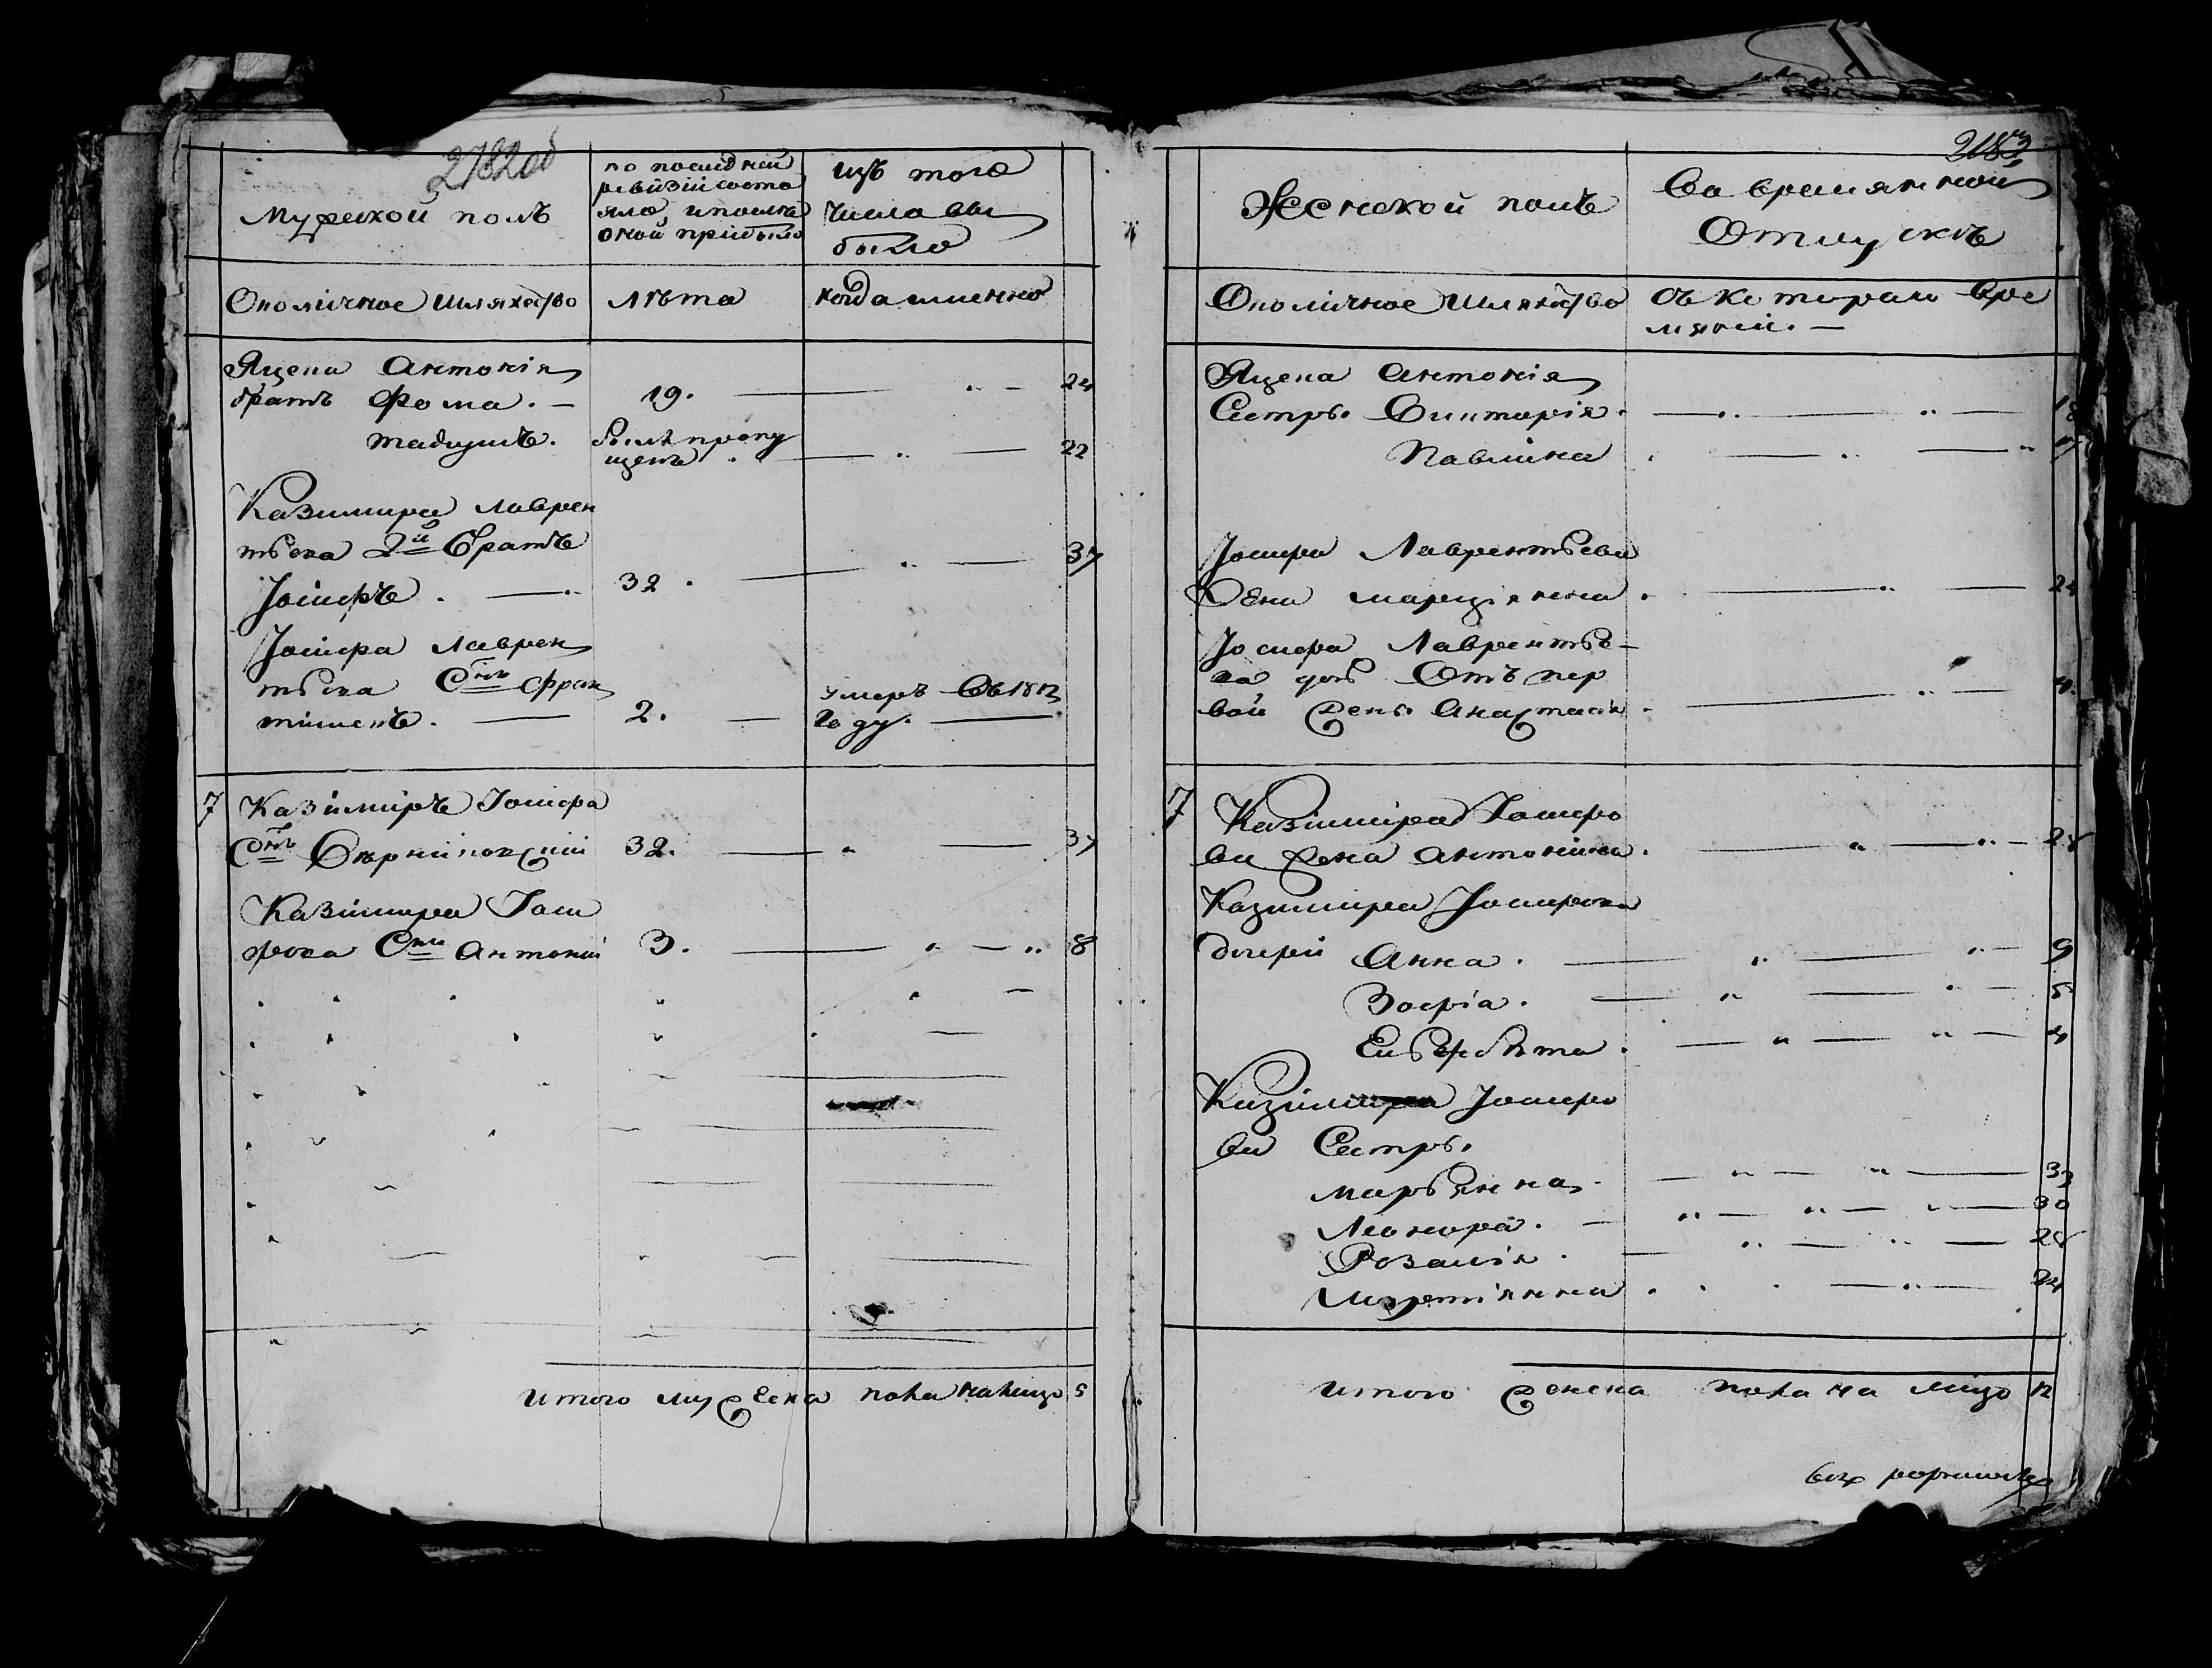 2782об
Мужской полъ
по последней
ревизіи состо
яло, и после
оной прибыло
изъ того
числа вы
было
Околичное Шляхетство
лѣта
когда именно
Яцена Антонія
братъ Фома. — 19. — 24
Тадеушъ. былъ пропу
щенъ. — 22
Казимира Лаврен
тьева 2й братъ
Іосифъ. — 32. — 37
Іосифа Лаврен
тьева Сынъ Фран
тишекъ. — 2. — умеръ Въ 1813
Году. —
7 Казиміръ Іосифа
Сынъ 32. — 37
Казимира Іоси
фова Снъ Антоній 3. — 8
Итого мужеска пола налицо 5
Женской полъ
Во временной
Отлучкѣ
Околичное Шляхетство
Съ которого вре
мяни. —
Яцена Антонія
Сестры Виктория. — 18
Павлина
Іосифа Лаврентьева
Жена Марціянна. — 24
Іосифа Лавренть-
ва дочь Отъ пер
вой жены Анастасія
7 Казимира Іосифо
ва жена Антонина. — 28
Казимира Іосифова
дочери Анна. — 9
Зофіа. — 5
Елье­жбѣта. — 4
Казимира Іосифо
ва Сестры
Марьянна,
Леонора. — 30
Розалія. — 28
Итого женска пола на лицо 12